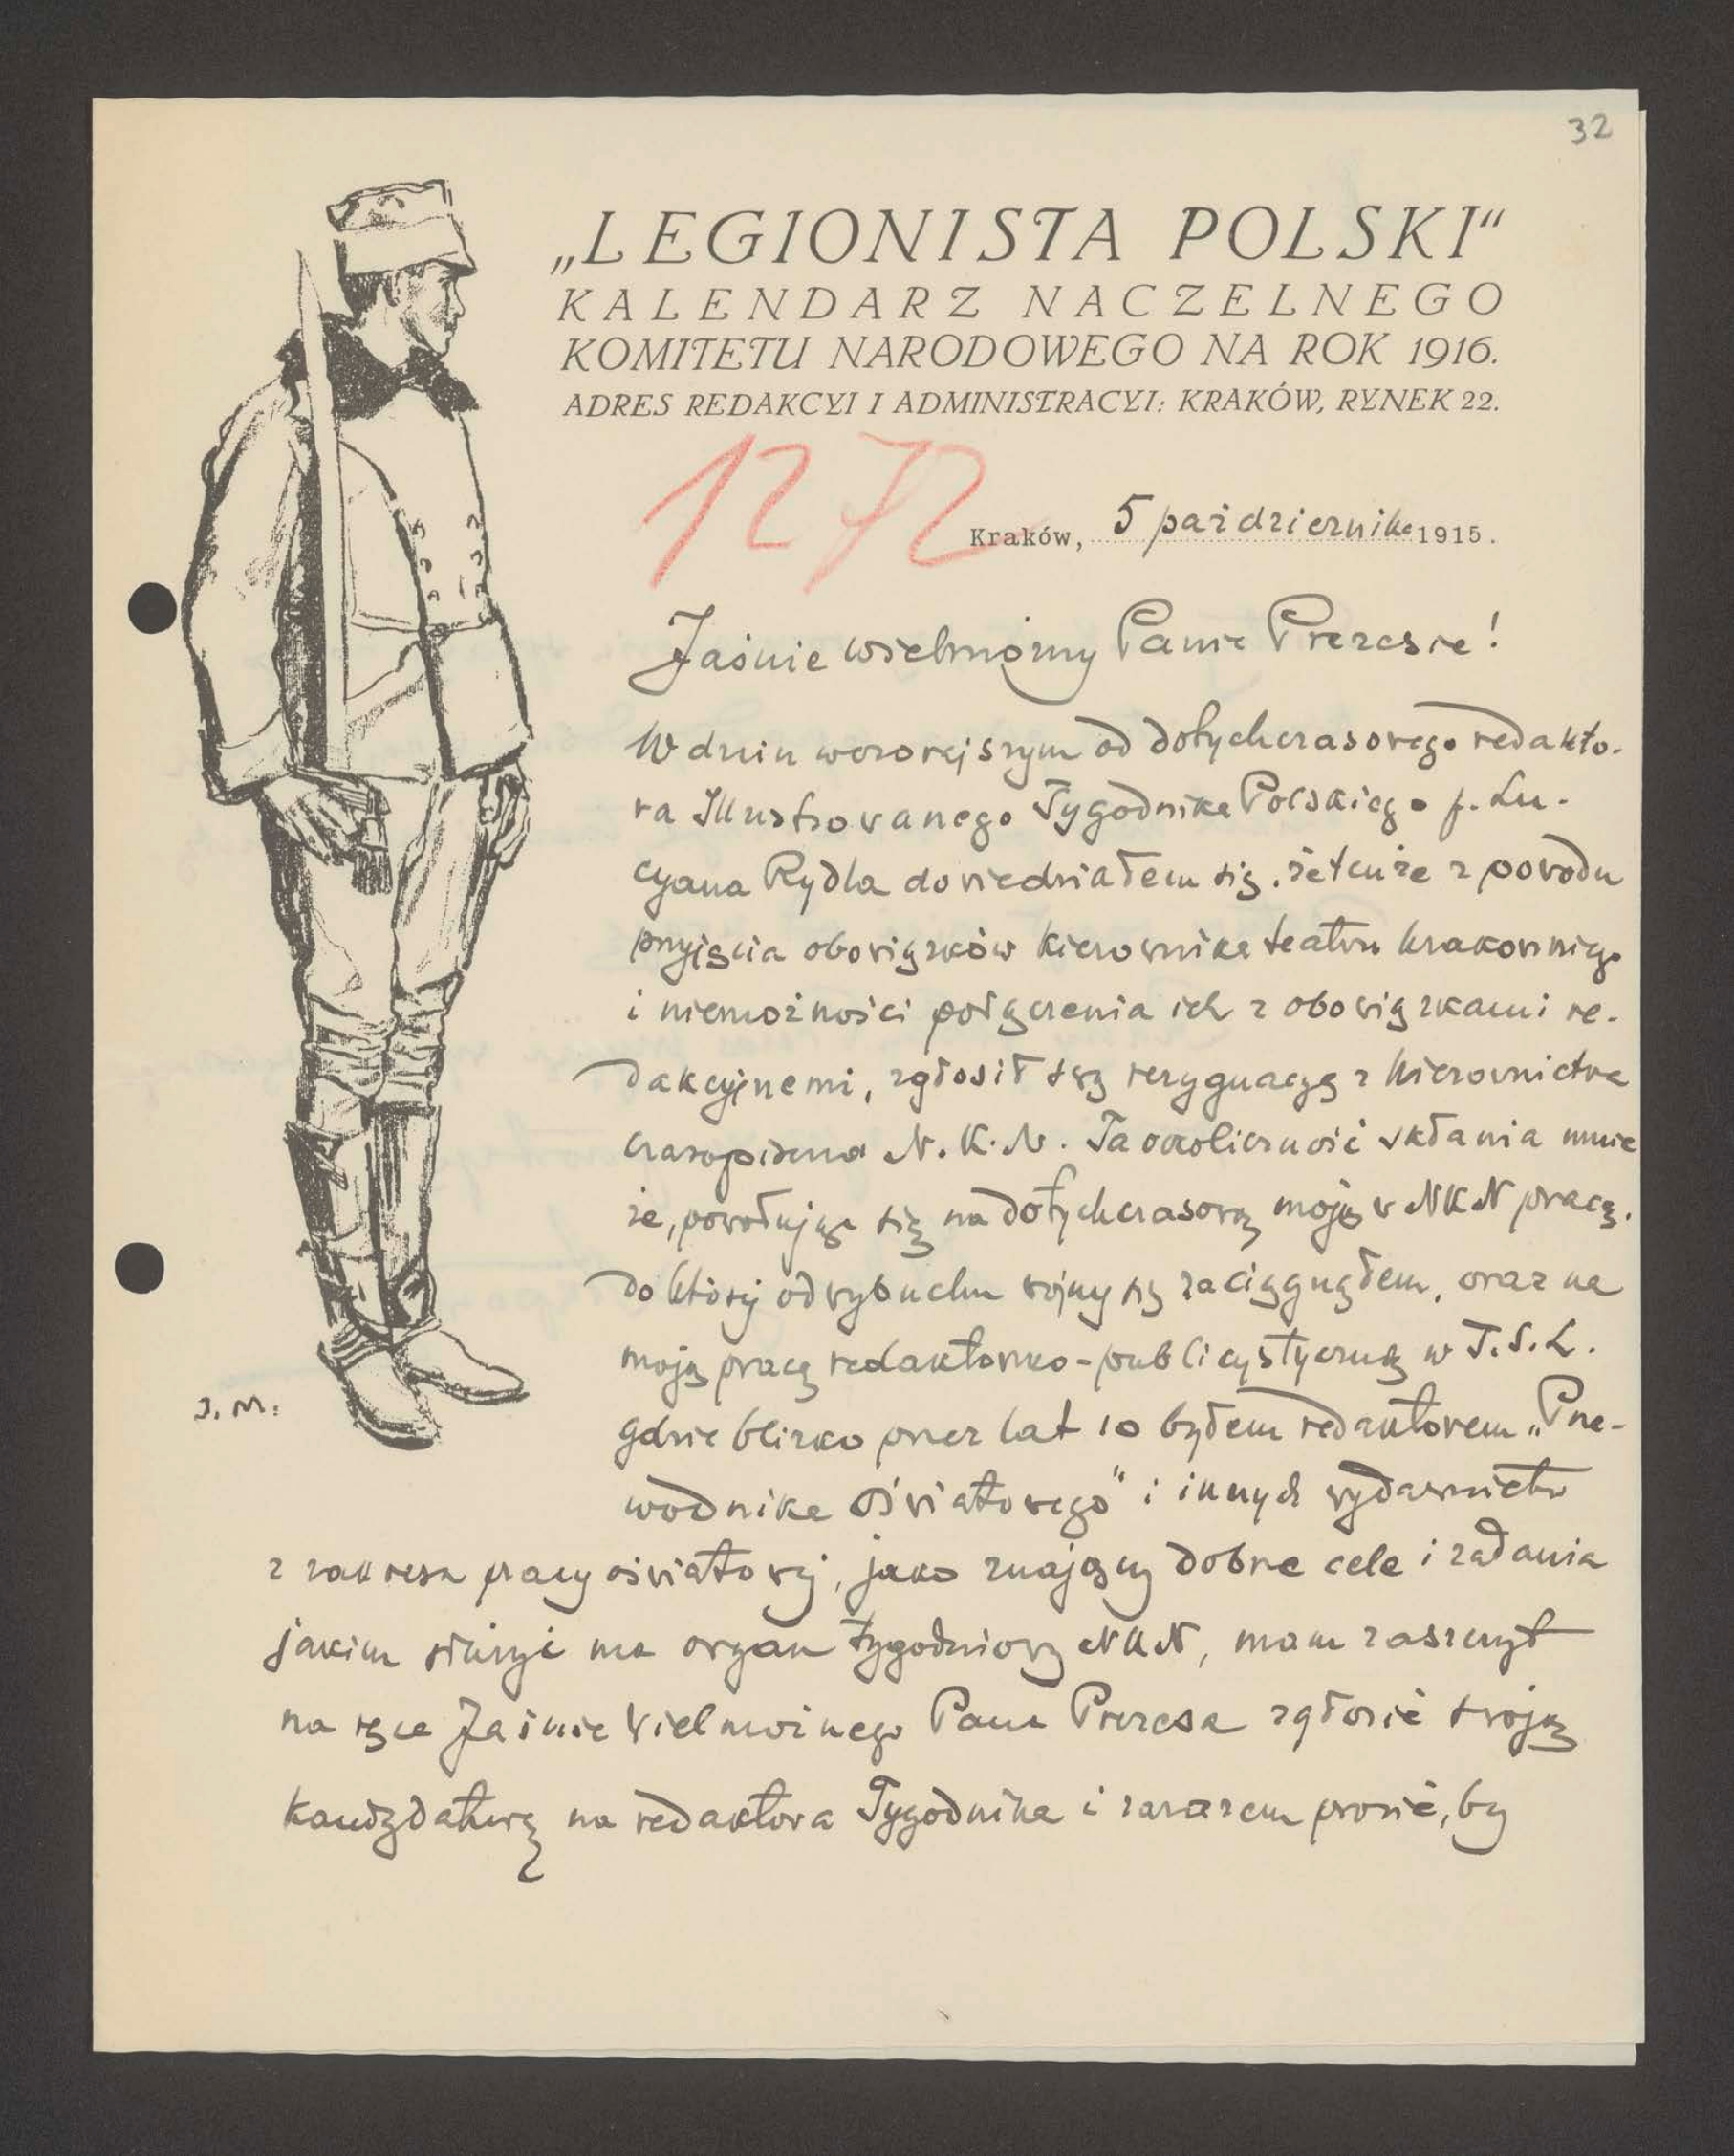 32
„LEGIONISTA POLSKI“
KALENDARZ NACZELNEGO
KOMITETU NARODOWEGO NA ROK 1916.
ADRES REDAKCYI I ADMINISTRACYI: KRAKÓW, RYNEK 22.
1272
Kraków, 5 października 1915.
Jaśnie wielmożny Panie Prezesie!
W dniu wczorajszym od dotychczasowego redakto-
ra Illustrowanego Tygodnika Polskiego p. Lu-
cyana Rydla dowiedziałem się, że tenże z powodu
przyjęcia obowiązków kierownika teatru krakowskiego
i niemożności połączenia ich z obowiązkami re-
dakcyjnemi, zgłosił swą rezygnacyę z kierownictwa
czasopisma N.K.N. Ta okoliczność skłania mnie
że, powołując się na dotychczasową moją w NKN pracę,
do której od wybuchu wojny się zaciągnąłem, oraz na
moją pracę redaktorsko-publicystyczną w T.S.L.
gdzie blizko przez lat 10 byłem redaktorem „Prze-
wodnika Oświatowego“ i innych wydawnictw
z zakresu pracy oświatowej, jako znający dobrze cele i zadania
jakim służyć ma organ tygodniowy NKN, mam zaszczyt
na ręce Jaśnie Wielmożnego Pana Prezesa zgłosić swoją
kandydaturę na redaktora Tygodnika i zarazem prosić, by
J. M.